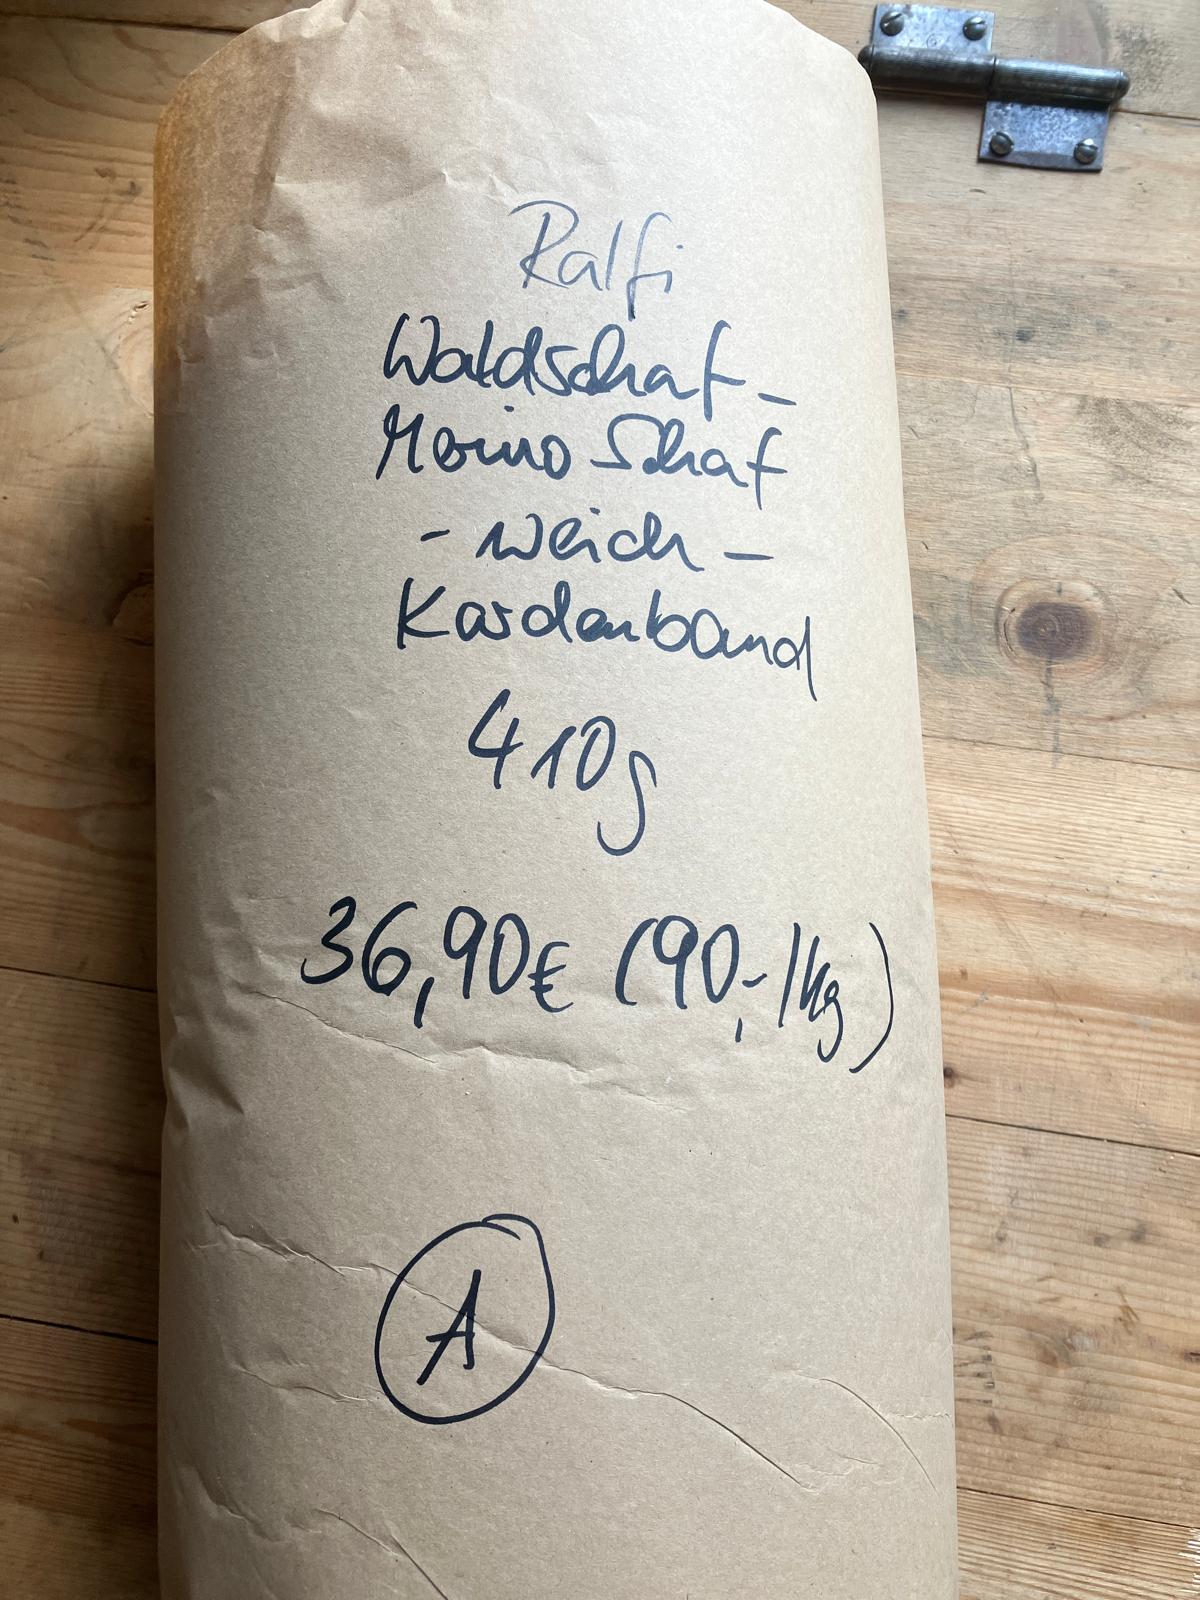 Ralfi
Waldschaf-
Merino Schaf
- weich -
Kardenband
410g
36,90€ (90,-/kg)
A